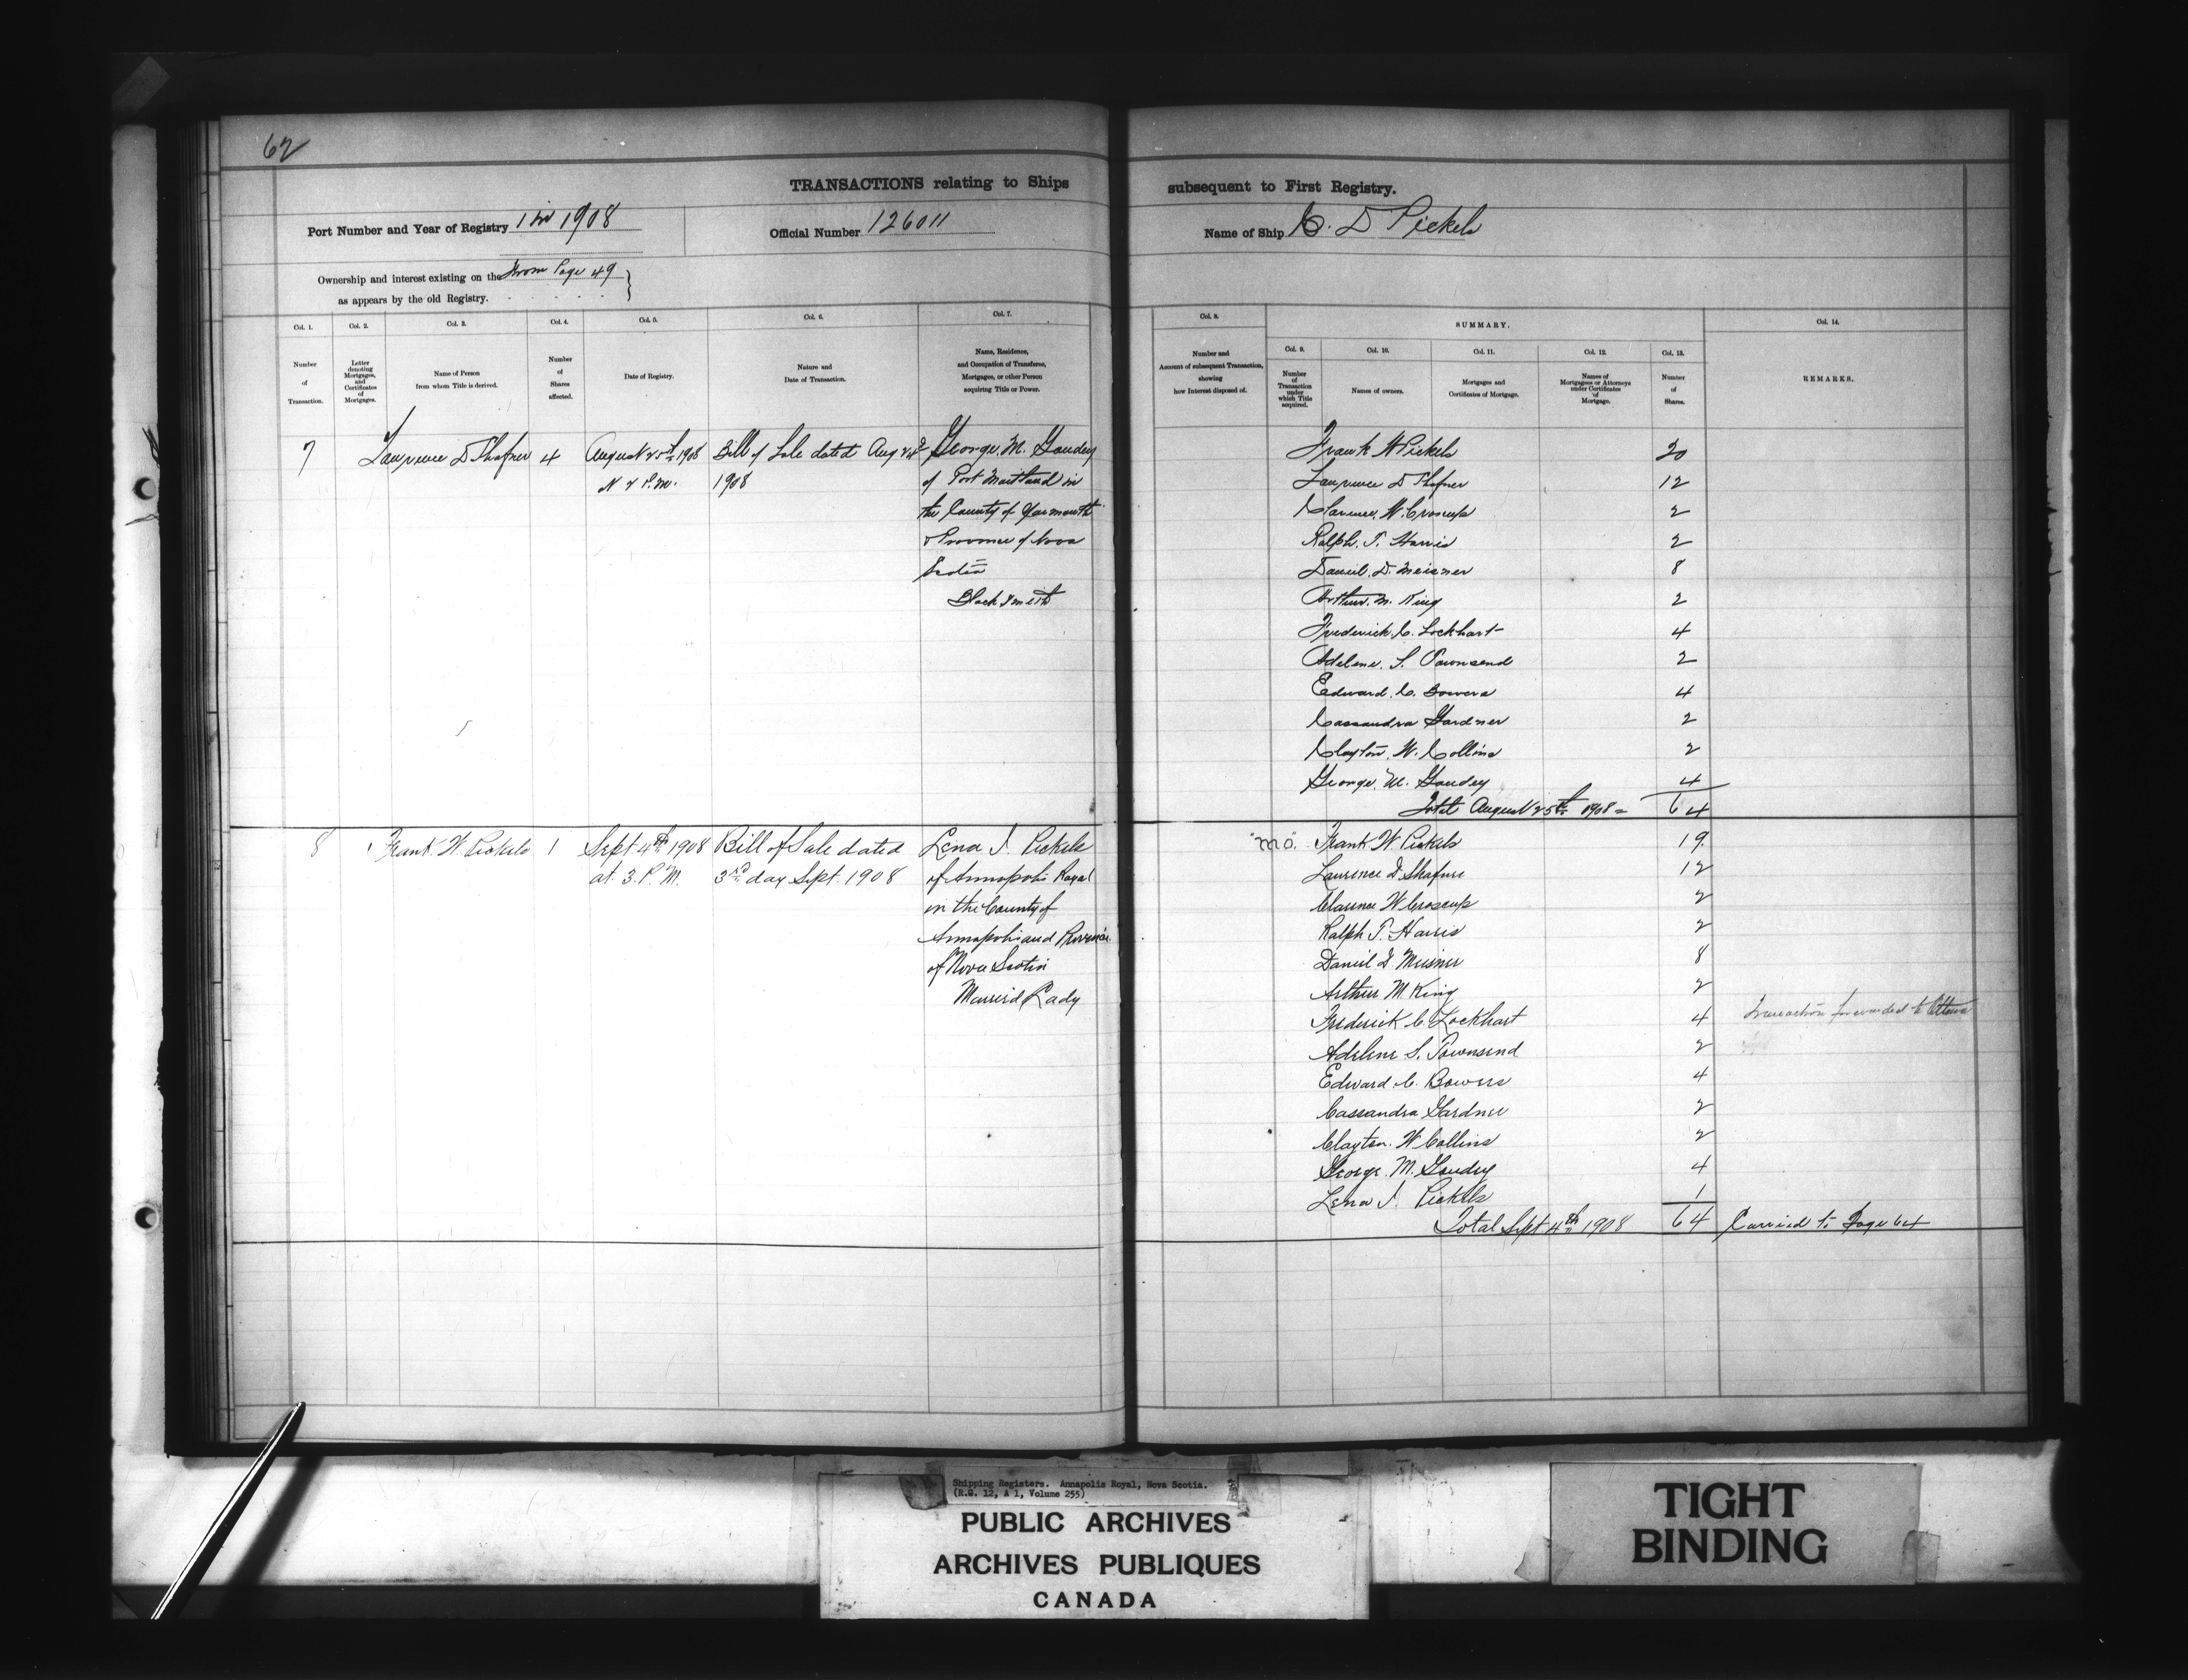 62
TRANSACTIONS relating to Ships subsequent to First Registry.
Port Number and Year of Registry 1 in 1908 Official Number 126011 Name of Ship C. D Pickels
Ownership and interest existing on the From Page 49
as appears by the old Registry.
Col. 1. Col. 2. Col. 3. Col. 4. Col. 5. Col. 6. Col. 7. Col. 8. SUMMARY. Col. 14.
Col. 9. Col. 10. Col. 11. Col. 12. Col. 13.
Number of Transaction.
Letter denoting Mortgages, and Certificates of Mortgages.
Name of Person from whom Title is derived.
Number of Shares affected.
Date of Registry.
Nature and Date of Transaction.
Name, Residence, and Occupation of Transferee, Mortgagee, or other Person acquiring Title or Power.
Number and Account of subsequent Transaction, showing how Interest disposed of.
Number of Transaction under which Title acquired.
Names of owners.
Mortgages and Certificates of Mortgage.
Names of Mortgagees or Attorneys under Certificates of Mortgage.
Number of Shares.
REMARKS.
7 Lawrence D Shafner 4 August 25th 1908 Bill of Sale dated Aug 24th George. M. Gaudey
2 P.M. 1908 of Port Maitland in
the County of Yarmouth
& Province of Nova
Scotia
Blacksmith
Frank W Pickels 20
Lawrence D Shafner 12
Clarence. W. Croscup 2
Ralph. T. Harris 2
Daniel. D. Meisner 8
Arthur. M. King 2
Frederick. C. Lockhart 4
Adelene. S. Townsend 2
Edward. C. Bowers 4
Cassandra Gardner 2
Clayton. W. Collins 2
George. M. Gaudey 4
Total August 25th 1908 = 64
8 Frank. W. Pickels 1 Sept 4th 1908 Bill of Sale dated Lena J. Pickels
at 3. P. M. 3rd day Sept. 1908 of Annapolis Royal
in the County of
Annapolis and Province
of Nova Scotia
Married Lady
"Mo". Frank W. Pickels 19.
Laurence D. Shafner 12
Clarence W Croscup 2
Ralph T. Harris 2
Daniel D Meisner 8
Arthur M. King 2
Frederick C. Lockhart 4 Transaction forwarded to Ottawa
Adelene S. Townsend 2
Edward. C. Bowers 4
Cassandra Gardner 2
Clayton. W Collins 2
George. M. Gaudey 4
Lena J. Pickels 1
Total Sept 4th 1908 64 Carried to Page 64
Shipping Registers. Annapolis Royal, Nova Scotia.
(R.G. 12, A 1, Volume 255)
PUBLIC ARCHIVES
ARCHIVES PUBLIQUES
CANADA
TIGHT
BINDING